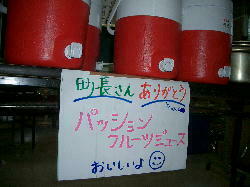 町長さん ありがとう
パッション
フルーツジュース
おいしいよ